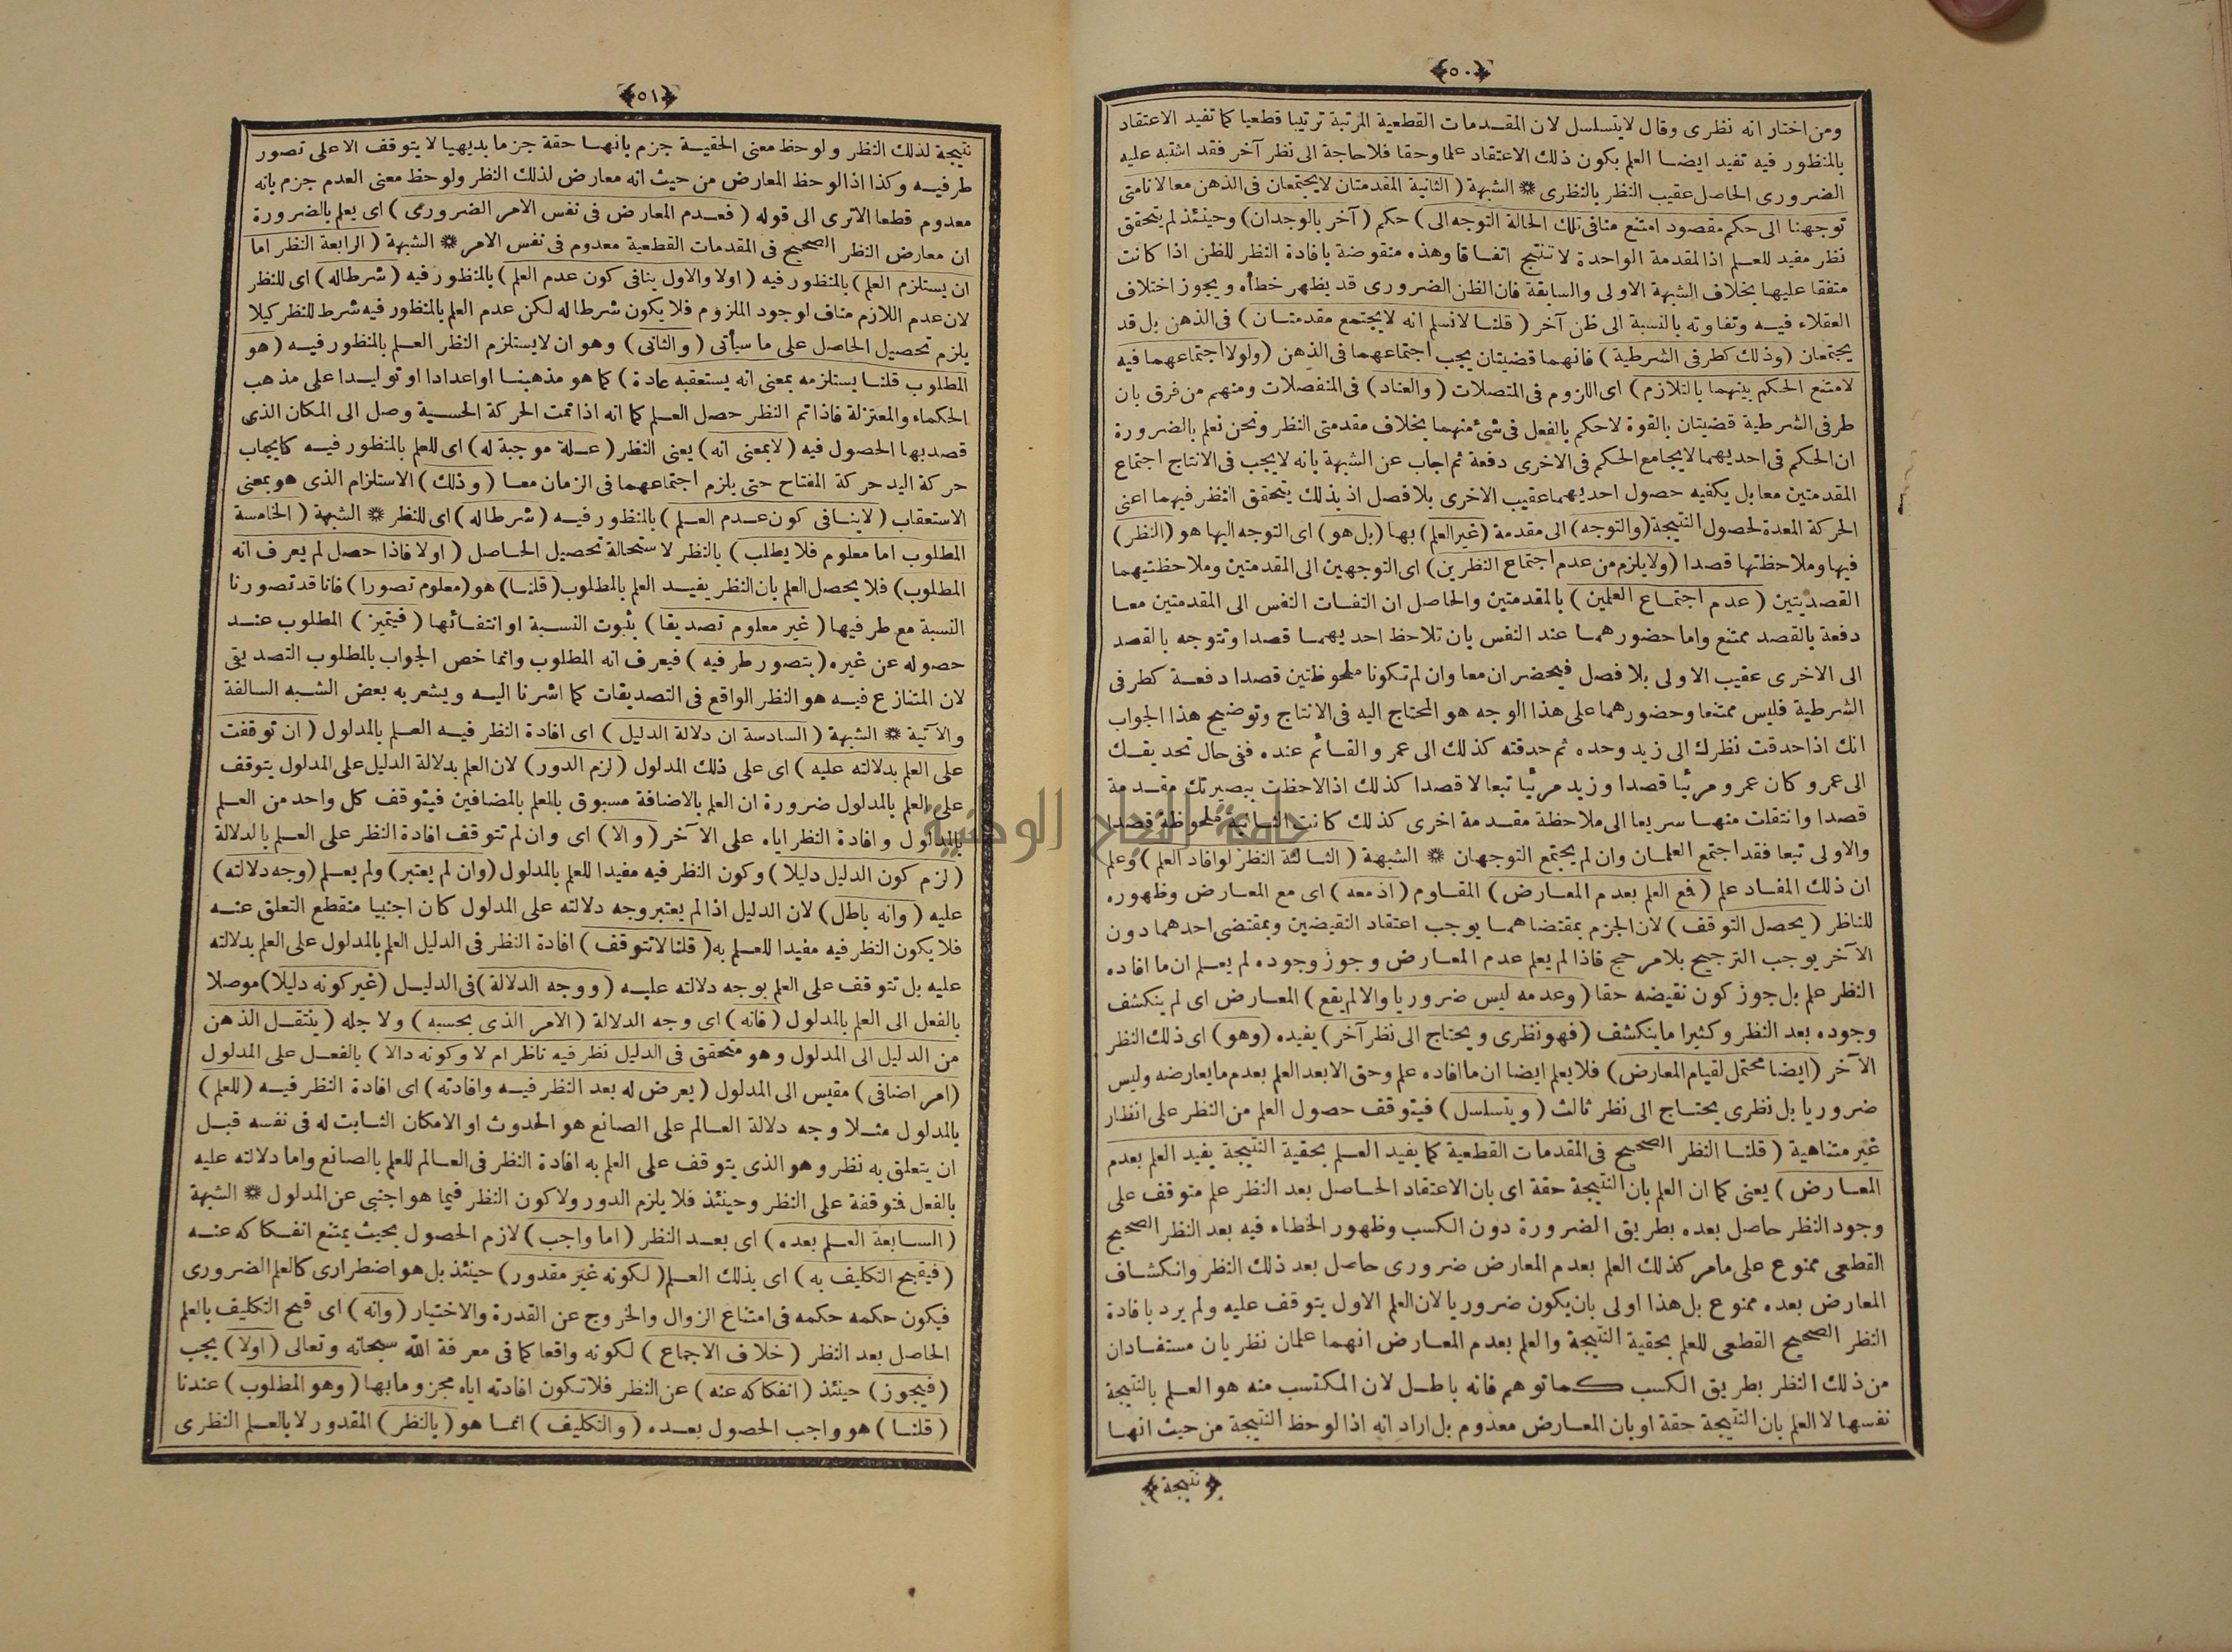 ﴿٥٠﴾
ومن اختار انه نظرى وقال لايتسلسل لان المقدمات القطعية المرتبة ترتيبا قطعيا كما تفيد الاعتقاد
بالمنظور فيه تفيد ايضا العلم بكون ذلك الاعتقاد علما وحقا فلاحاجة الى نظر آخر فقد اشتبه عليه
الضرورى الحاصل عقيب النظر بالنظرى * الشبهة (الثانية المقدمتان لايجتمعان فى الذهن معا لانا متى
توجهنا الى حكم مقصود امتنع منا فى تلك الحالة التوجه الى) حكم (آخر بالوجدان) وحينئذ لم يتحقق
نظر مفيد للعلم اذ المقدمة الواحدة لا تنتج اتفاقا وهذه منقوضة بافادة النظر للظن اذا كانت
متفقا عليها بخلاف الشبهة الاولى والسابقة فان الظن الضرورى قد يظهر خطأه ويجوز اختلاف
العقلاء فيه وتفاوته بالنسبة الى ظن آخر (قلنا لانسلم انه لايجتمع مقدمتان) فى الذهن بل قد
يجتمعان (وذلك كطرفى الشرطية) فانهما قضيتان يجب اجتماعهما فى الذهن (ولولا اجتماعهما فيه
لامتنع الحكم بينهما بالتلازم) اى اللزوم فى المتصلات (والعناد) فى المنفصلات ومنهم من فرق بان
طرفى الشرطية قضيتان بالقوة لاحكم بالفعل فى شئ منهما بخلاف مقدمتى النظر ونحن نعلم بالضرورة
ان الحكم فى احديهما لايجامع الحكم فى الاخرى دفعة ثم اجاب عن الشبهة بانه لايجب فى الانتاج اجتماع
المقدمتين معا بل يكفيه حصول احديهما عقيب الاخرى بلا فصل اذ بذلك يتحقق النظر فيهما اعنى
الحركة المعدة لحصول النتيجة (والتوجه) الى مقدمة (غير العلم) بها (بل هو) اى التوجه اليها هو (النظر)
فيها وملاحظتها قصدا (ولايلزم من عدم اجتماع النظرين) اى التوجهين الى المقدمتين وملاحظتيهما
القصديتين (عدم اجتماع العلمين) بالمقدمتين والحاصل ان التفات النفس الى المقدمتين معا
دفعة بالقصد ممتنع واما حضورهما عند النفس بان تلاحظ احديهما قصدا وتتوجه بالقصد
الى الاخرى عقيب الاولى بلا فصل فيحضران معا وان لم تكونا ملحوظتين قصدا دفعة كطرفى
الشرطية فليس ممتنعا وحضورهما على هذا الوجه هو المحتاج اليه فى الانتاج وتوضيح هذا الجواب
انك اذا حدقت نظرك الى زيد وحده ثم حدقته كذلك الى عمرو القائم عنده ففى حال تحديقك
الى عمرو كان عمرو مرئيا قصدا وزيد مرئيا تبعا لا قصدا كذلك اذا لاحظت ببصيرتك مقدمة
قصدا وانتقلت منها سريعا الى ملاحظة مقدمة اخرى كذلك كانت الثانية ملحوظة قصدا
والاولى تبعا فقد اجتمع العلمان وان لم يجتمع التوجهان * الشبهة (الثالثة النظر لو افاد العلم) وعلم
ان ذلك المفاد علم (فمع العلم بعدم المعارض) المقاوم (اذ معه) اى مع المعارض وظهوره
للناظر (يحصل التوقف) لان الجزم بمقتضاهما يوجب اعتقاد النقيضين وبمقتضى احدهما دون
الآخر يوجب الترجيح بلا مرجح فاذا لم يعلم عدم المعارض وجوز وجوده لم يعلم ان ما افاده
النظر علم بل جوز كون نقيضه حقا (وعدمه ليس ضروريا والا لم يقع) المعارض اى لم ينكشف
وجوده بعد النظر وكثيرا ما ينكشف (فهو نظرى ويحتاج الى نظر آخر) يفيده (وهو) اى ذلك النظر
الآخر (ايضا محتمل لقيام المعارض) فلا يعلم ايضا ان ما افاده علم وحق الا بعد العلم بعدم مايعارضه وليس
ضروريا بل نظرى يحتاج الى نظر ثالث (ويتسلسل) فيتوقف حصول العلم من النظر على انظار
غير متناهية (قلنا النظر الصحيح فى المقدمات القطعية كما يفيد العلم بحقية النتيجة يفيد العلم بعدم
المعارض) يعنى كما ان العلم بان النتيجة حقة اى بان الاعتقاد الحاصل بعد النظر علم متوقف على
وجود النظر حاصل بعده بطريق الضرورة دون الكسب وظهور الخطاء فيه بعد النظر الصحيح
القطعى ممنوع على مامر كذلك العلم بعدم المعارض ضرورى حاصل بعد ذلك النظر وانكشاف
المعارض بعده ممنوع بل هذا اولى بان يكون ضروريا لان العلم الاول يتوقف عليه ولم يرد بافادة
النظر الصحيح القطعى للعلم بحقية النتيجة والعلم بعدم المعارض انهما علمان نظريان مستفادان
من ذلك النظر بطريق الكسب كما توهم فانه باطل لان المكتسب منه هو العلم بالنتيجة
نفسها لا العلم بان النتيجة حقة او بان المعارض معدوم بل اراد انه اذا لوحظ النتيجة من حيث انها
﴿نتيجة﴾
﴿٥١﴾
نتيجة لذلك النظر ولوحظ معنى الحقية جزم بانها حقة جزما بديهيا لا يتوقف الا على تصور
طرفيه وكذا اذا لوحظ المعارض من حيث انه معارض لذلك النظر ولوحظ معنى العدم جزم بانه
معدوم قطعا الاترى الى قوله (فعدم المعارض فى نفس الامر الضرورى) اى يعلم بالضرورة
ان معارض النظر الصحيح فى المقدمات القطعية معدوم فى نفس الامر * الشبهة (الرابعة النظر اما
ان يستلزم العلم) بالمنظور فيه (اولا والاول ينافى كون عدم العلم) بالمنظور فيه (شرطا له) اى للنظر
لان عدم اللازم مناف لوجود الملزوم فلا يكون شرطا له لكن عدم العلم بالمنظور فيه شرط للنظر كيلا
يلزم تحصيل الحاصل على ما سيأتى (والثانى) وهو ان لايستلزم النظر العلم بالمنظور فيه (هو
المطلوب قلنا يستلزمه بمعنى انه يستعقبه عادة) كما هو مذهبنا او اعدادا او توليدا على مذهب
الحكماء والمعتزلة فاذا تم النظر حصل العلم كما انه اذا تمت الحركة الحسية وصل الى المكان الذى
قصد بها الحصول فيه (لابمعنى انه) يعنى النظر (علة موجبة له) اى للعلم بالمنظور فيه كايجاب
حركة اليد حركة المفتاح حتى يلزم اجتماعهما فى الزمان معا (وذلك) الاستلزام الذى هو بمعنى
الاستعقاب (لاينافى كون عدم العلم) بالمنظور فيه (شرطا له) اى للنظر * الشبهة (الخامسة
المطلوب اما معلوم فلا يطلب) بالنظر لاستحالة تحصيل الحاصل (اولا فاذا حصل لم يعرف انه
المطلوب) فلا يحصل العلم بان النظر يفيد العلم بالمطلوب (قلنا) هو (معلوم تصورا) فانا قد تصورنا
النسبة مع طرفيها (غير معلوم تصديقا) بثبوت النسبة او انتفائها (فيتميز) المطلوب عند
حصوله عن غيره (بتصور طرفيه) فيعرف انه المطلوب وانما خص الجواب بالمطلوب التصديقى
لان المتنازع فيه هو النظر الواقع فى التصديقات كما اشرنا اليه ويشعر به بعض الشبه السالفة
والآتية * الشبهة (السادسة ان دلالة الدليل) اى افادة النظر فيه العلم بالمدلول (ان توقفت
على العلم بدلالته عليه) اى على ذلك المدلول (لزم الدور) لان العلم بدلالة الدليل على المدلول يتوقف
على العلم بالمدلول ضرورة ان العلم بالاضافة مسبوق بالعلم بالمضافين فيتوقف كل واحد من العلم
بالمدلول وافادة النظر اياه على الآخر (والا) اى وان لم تتوقف افادة النظر على العلم بالدلالة
(لزم كون الدليل دليلا) وكون النظر فيه مفيدا للعلم بالمدلول (وان لم يعتبر) ولم يعلم (وجه دلالته)
عليه (وانه باطل) لان الدليل اذا لم يعتبر وجه دلالته على المدلول كان اجنبيا منقطع التعلق عنه
فلا يكون النظر فيه مفيدا للعلم به (قلنا لاتتوقف) افادة النظر فى الدليل العلم بالمدلول على العلم بدلالته
عليه بل تتوقف على العلم بوجه دلالته عليه (ووجه الدلالة) فى الدليل (غير كونه دليلا) موصلا
بالفعل الى العلم بالمدلول (فانه) اى وجه الدلالة (الامر الذى بحسبه) ولاجله (ينتقل الذهن
من الدليل الى المدلول وهو متحقق فى الدليل نظر فيه ناظر ام لا وكونه دالا) بالفعل على المدلول
(امر اضافى) مقيس الى المدلول (يعرض له بعد النظر فيه وافادته) اى افادة النظر فيه (للعلم)
بالمدلول مثلا وجه دلالة العالم على الصانع هو الحدوث او الامكان الثابت له فى نفسه قبل
ان يتعلق به نظر وهو الذى يتوقف على العلم به افادة النظر فى العالم للعلم بالصانع واما دلالته عليه
بالفعل فتوقفة على النظر وحينئذ فلا يلزم الدور ولا كون النظر فيما هو اجنبى عن المدلول * الشبهة
(السابعة العلم بعده) اى بعد النظر (اما واجب) لازم الحصول بحيث يمتنع انفكاكه عنه
(فيقبح التكليف به) اى بذلك العلم (لكونه غير مقدور) حينئذ بل هو اضطرارى كالعلم الضرورى
فيكون حكمه حكمه فى امتناع الزوال والخروج عن القدرة والاختيار (وانه) اى قبح التكليف بالعلم
الحاصل بعد النظر (خلاف الاجماع) لكونه واقعا كما فى معرفة الله سبحانه وتعالى (اولا) يجب
(فيجوز) حينئذ (انفكاكه عنه) عن النظر فلا تكون افادته اياه مجزوما بها (وهو المطلوب) عندنا
(قلنا) هو واجب الحصول بعده (والتكليف) انما هو (بالنظر) المقدور لا بالعلم النظرى
جامعة النجاح الوطنية